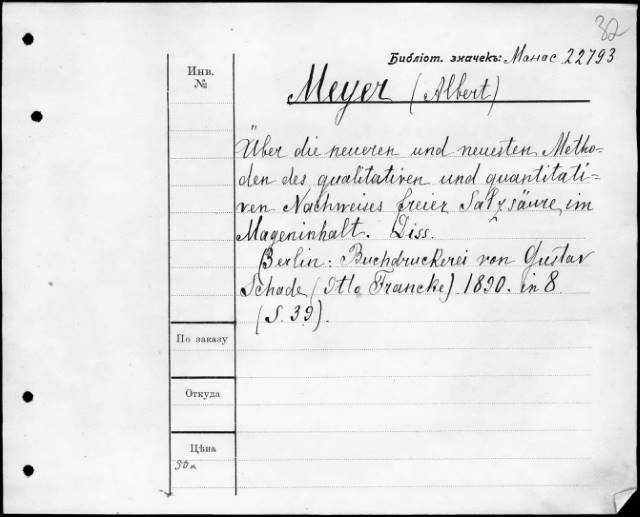 32
Библіот. значекъ: Манас 22793
Инв.
№
Meyer (Albert)
Über die neueren und neuesten Metho=
den des qualitativen und quantitati=
ven Nachweises freier Salzsäure im
Mageninhalt. Diss.
Berlin: Buchdruckerei von Gustav
Schade (Otto Francke) 1890. in 8.
(S. 39).
По заказу
Откуда
Цѣна